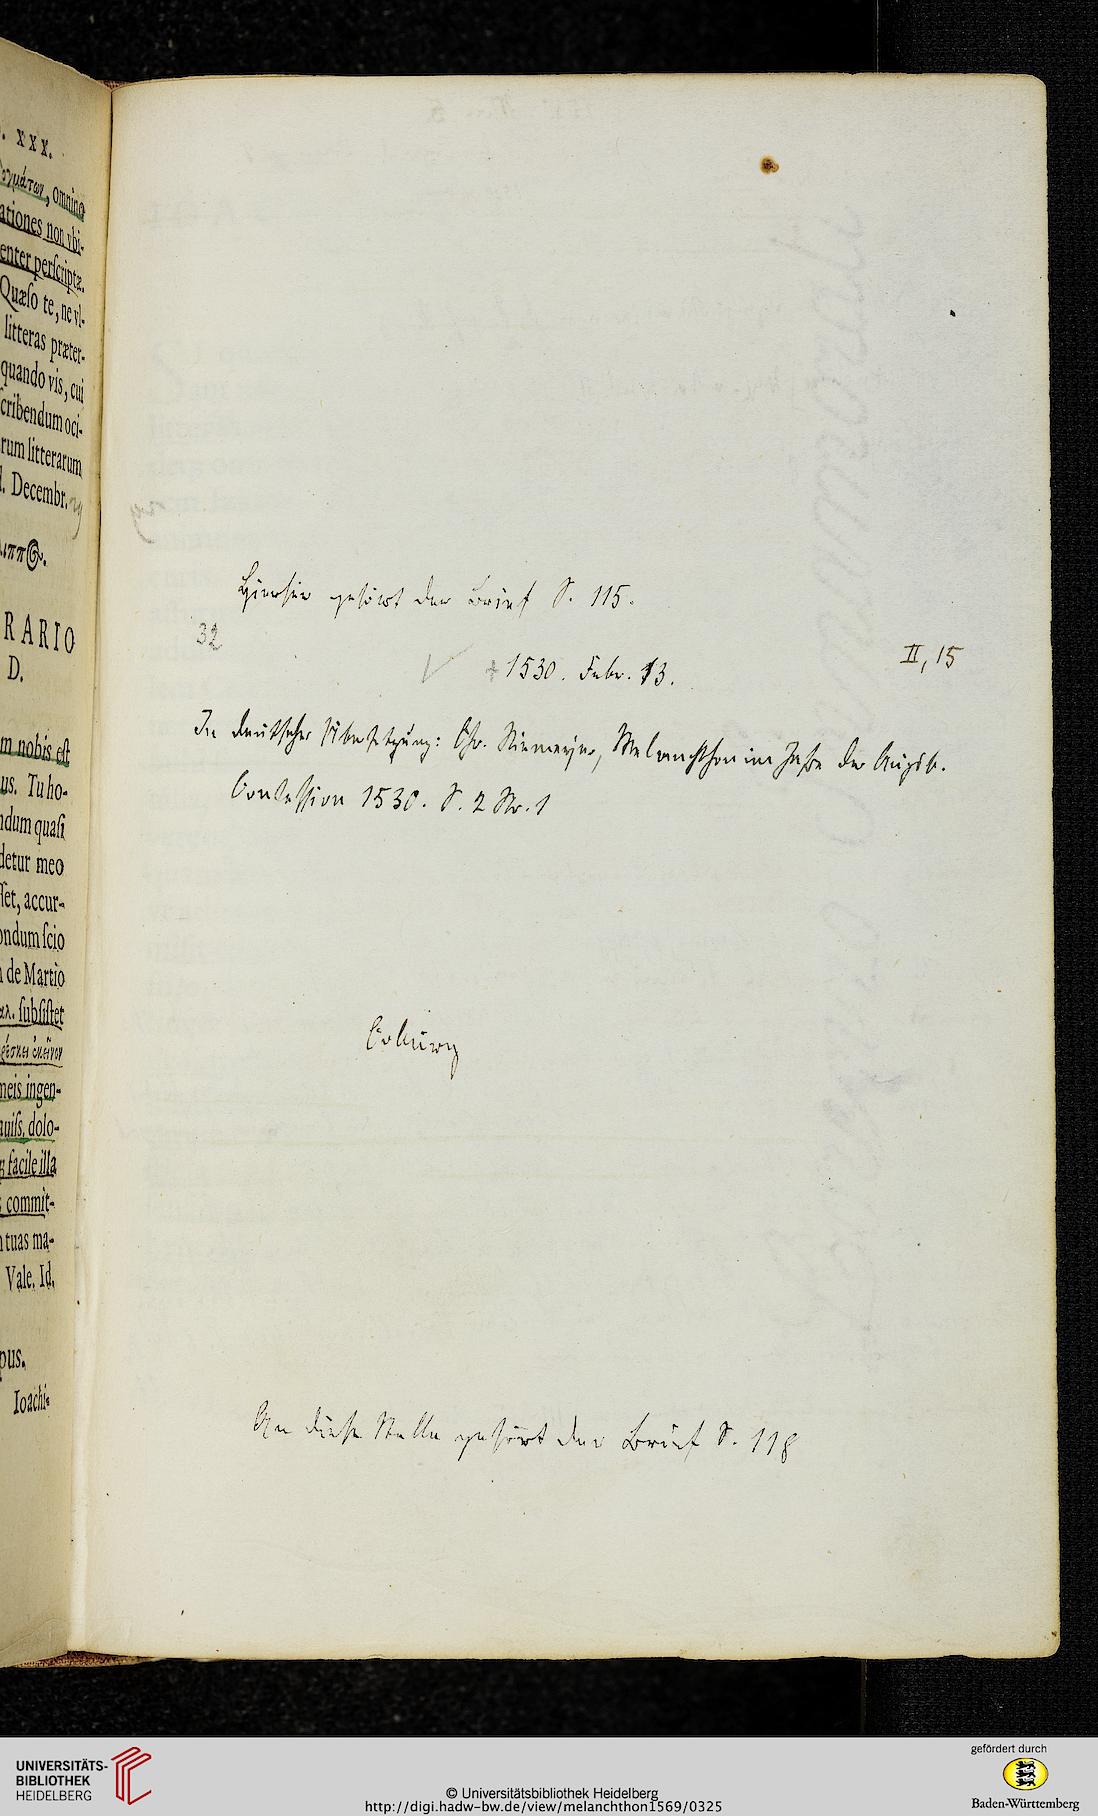 . XXX.
ογμάτων, omnino
ationes non vbi-
enter perſcriptæ.
Quæſo te, ne vl-
litteras præter-
quando vis, cui
ſcribendum oci-
rum litterarum
d. Decembr.
ιππ
RARIO
D.
m nobis eſt
us. Tu ho-
ndum quaſi
detur meo
ſſet, accur-
ondum ſcio
de Martio
αλ. ſubſiſtet
ἐκεῖνον
meis ingen-
auiſs. dolo-
facile illa
commit-
tuas ma-
Vale. Id.
pus.
Ioachi-
Hierher gehört der Brief S. 115.
32
+ 1530. Febr. 13.
II, 15
In deutscher Übersetzung: Chr. Niemeyer, Melanchthon im Jahre der Augsb.
Confession 1530. S. 2 Nr. 1
Coburg
An diese Stelle gehört der Brief S. 118
UNIVERSITÄTS-
BIBLIOTHEK
HEIDELBERG
© Universitätsbibliothek Heidelberg
http://digi.hadw-bw.de/view/melanchthon1569/0325
gefördert durch
Baden-Württemberg